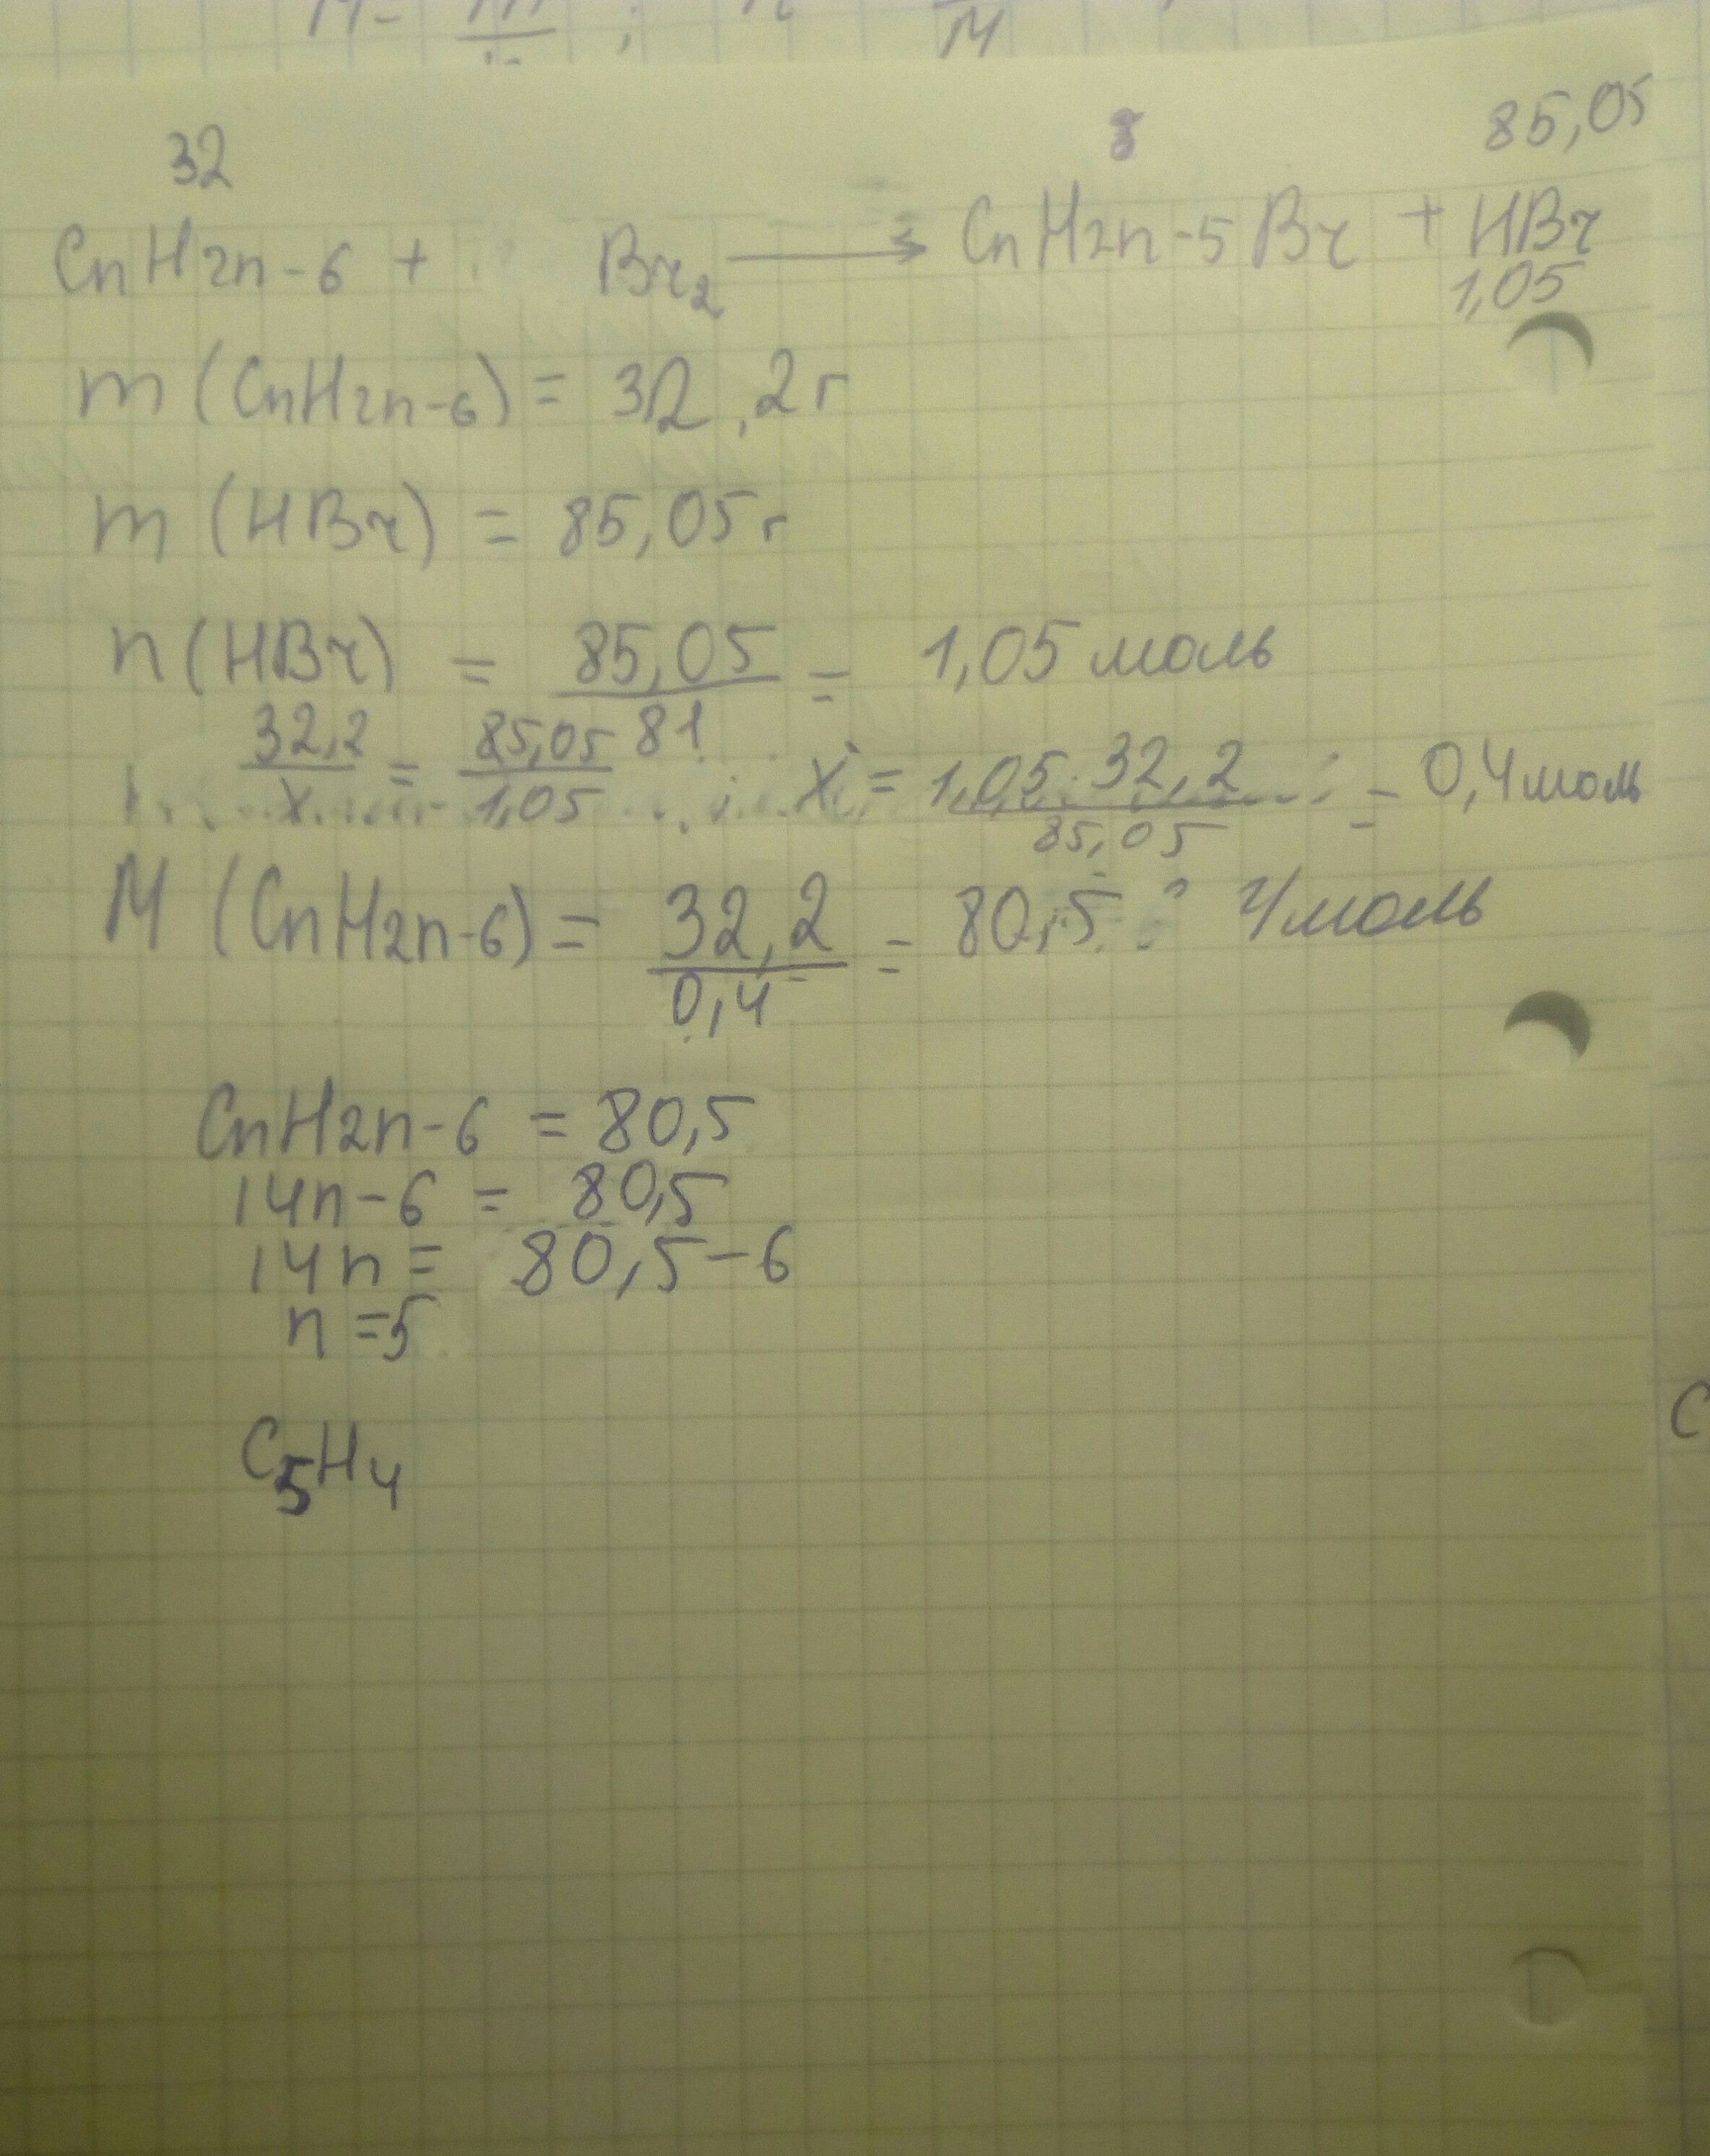 M = m ; M
32 8 85,05
CnH2n-6 + Br2 → CnH2n-5Br + HBr
1,05
m (CnH2n-6) = 32,2г
m (HBr) = 85,05г
n (HBr) = 85,05 / 81 = 1,05 моль
32,2 / x = 85,05 / 1,05 x = 1,05 · 32,2 / 85,05 = 0,4 моль
M (CnH2n-6) = 32,2 / 0,4 = 80,5 г/моль
CnH2n-6 = 80,5
14n-6 = 80,5
14n = 80,5-6
n = 5
C5H4
C